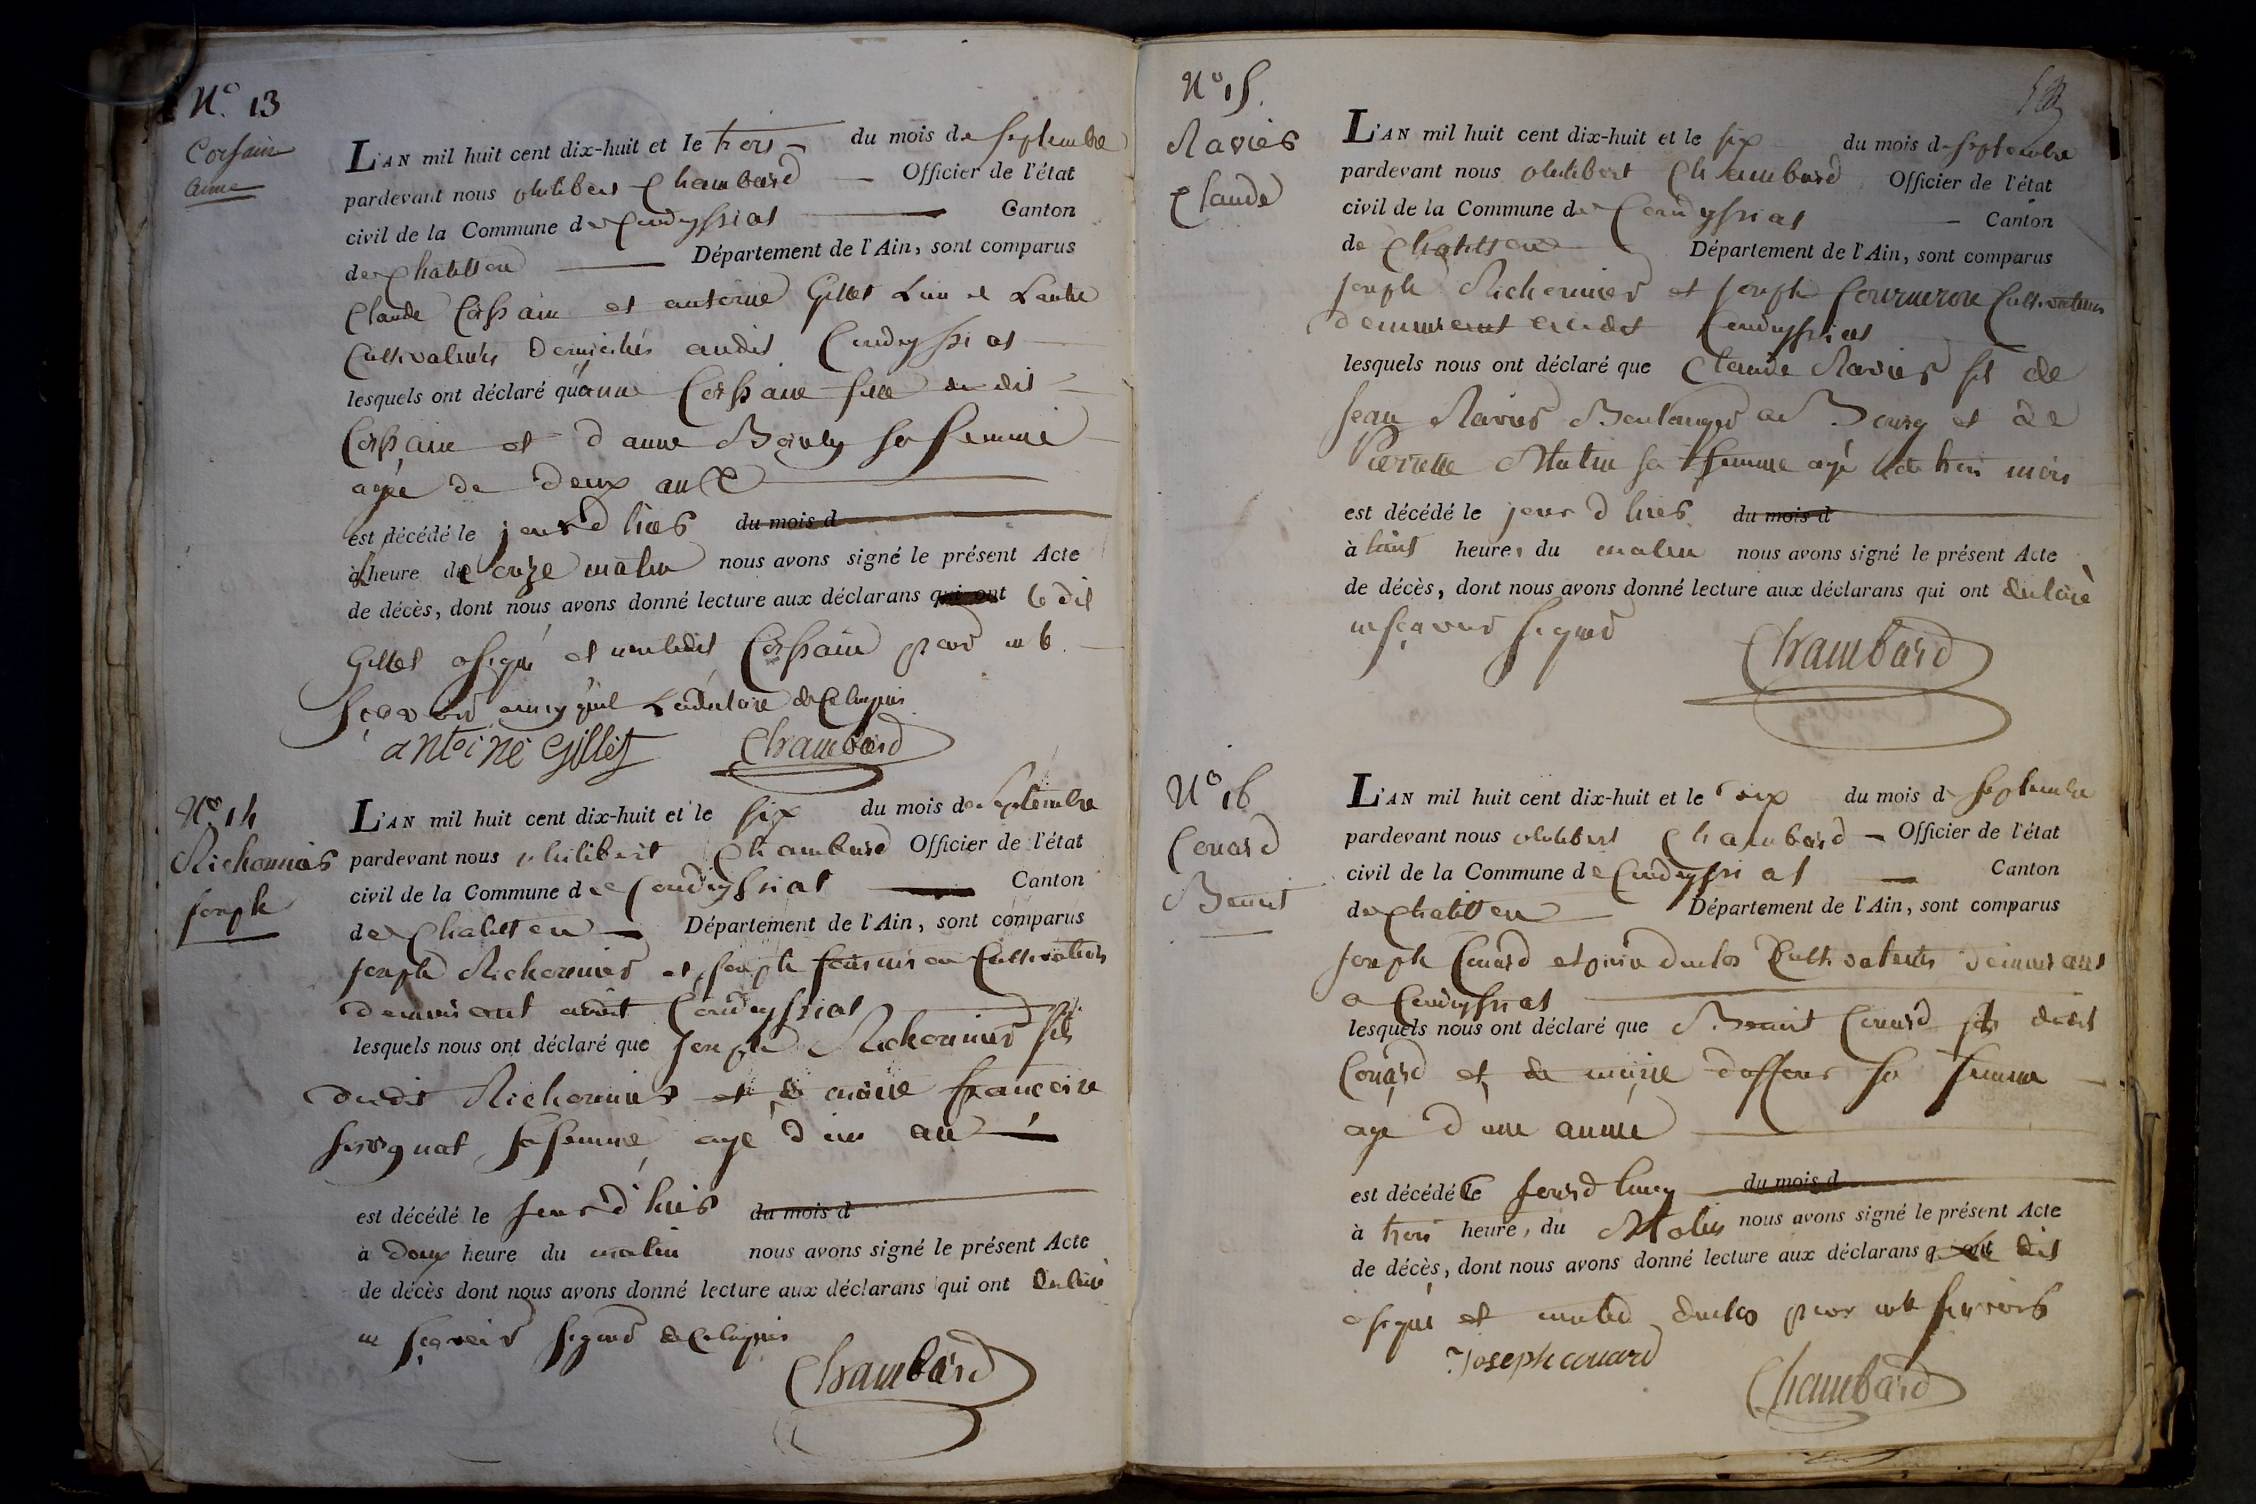 N.° 13
Corsain
anne
L'AN mil huit cent dix-huit et le trois du mois de septembre
pardevant nous philibert Chambard Officier de l'état
civil de la Commune de Condeyssiat Canton
de Chatillon Département de l'Ain, sont comparus
Claude Corsain et antoine Gillet L'un et L'autre
Cultivateurs domiciliés audit Condeyssiat
lesquels ont déclaré qu'anne Corsain fille dudit
Corsain et d'anne sa femme
agée de deux ans
est décédé le jour d'hier du mois d
à heure de onze matin nous avons signé le présent Acte
de décès, dont nous avons donné lecture aux déclarans qui ont le dit
Gillet a signé et non ledit Corsain pour ne
sçavoir
antoine Gillet Chambard
N° 14
Richonnier
joseph
L'AN mil huit cent dix-huit et le six du mois de septembre
pardevant nous philibert Chambard Officier de l'état
civil de la Commune de Condeyssiat Canton
de Chatillon Département de l'Ain, sont comparus
joseph Richonnier et joseph Cultivateurs
demeurant audit Condeyssiat
lesquels nous ont déclaré que joseph Richonnier fils
dudit Richonnier et de marie françoise
sa femme, agé d'un an
est décédé le jour d'hier du mois d
à deux heure du matin nous avons signé le présent Acte
de décès dont nous avons donné lecture aux déclarans qui ont déclaré
ne sçavoir signer
Chambard
N° 15.
Ravier
Claude
L'AN mil huit cent dix-huit et le six du mois de septembre
pardevant nous philibert Chambard Officier de l'état
civil de la Commune de Condeyssiat Canton
de Chatillon Département de l'Ain, sont comparus
joseph Richonnier et joseph Cultivateurs
demeurant audit Condeyssiat
lesquels nous ont déclaré que Claude Ravier fils de
jean Ravier Boulanger a Bourg et de
Pierrette sa femme agé de trois mois
est décédé le jour d'hier du mois d
à huit heure, du matin nous avons signé le présent Acte
de décès, dont nous avons donné lecture aux déclarans qui ont déclaré
ne sçavoir signer
Chambard
N° 16
Couard
Benoit
L'AN mil huit cent dix-huit et le du mois d septembre
pardevant nous philibert Chambard Officier de l'état
civil de la Commune de Condeyssiat Canton
de Chatillon Département de l'Ain, sont comparus
joseph Couard et duclos Cultivateurs demeurant
a Condeyssiat
lesquels nous ont déclaré que Benoit Couard fils dudit
Couard et de marie sa femme
agé d'une année
est décédé le jour d'huy du mois d
à trois heure, du Matin nous avons signé le présent Acte
de décès, dont nous avons donné lecture aux déclarans dit
a signé et non led duclos pour ne sçavoir
Joseph couard
Chambard